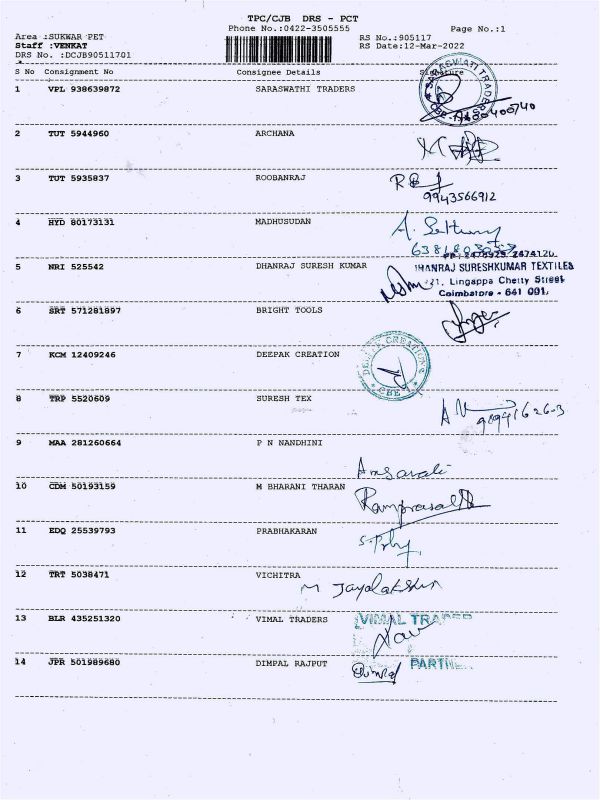 TPC/CJB DRS - PCT
Phone No.:0422-3505555
Page No.:1
Area :SUKWAR PET
RS No.:905117
Staff :VENKAT
RS Date:12-Mar-2022
DRS No. :DCJB90511701
S No Consignment No Consignee Details Signature
1 VPL 938639872 SARASWATHI TRADERS
SARASWATI TRADERS
2 TUT 5944960 ARCHANA
3 TUT 5935837 ROOBANRAJ
9943566912
4 HYD 80173131 MADHUSUDAN
5 NRI 525542 DHANRAJ SURESH KUMAR
SURESHKUMAR TEXTILES
Lingappa Chetty Street
Coimbatore - 641 001.
6 SRT 571281897 BRIGHT TOOLS
7 KCM 12409246 DEEPAK CREATION
CREATIONS
CBE
8 TRP 5520609 SURESH TEX
9 MAA 281260664 P N NANDHINI
10 CDM 50193159 M BHARANI THARAN
11 EDQ 25539793 PRABHAKARAN
12 TRT 5038471 VICHITRA
13 BLR 435251320 VIMAL TRADERS
VIMAL
14 JPR 501989680 DIMPAL RAJPUT